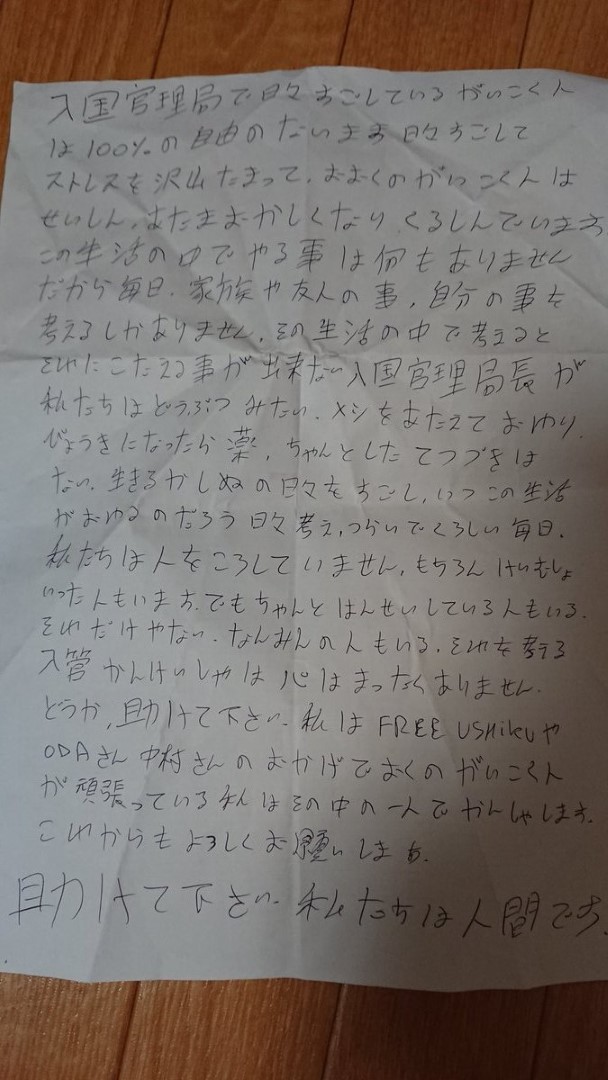 入国官理局で日々すごしているがいこく人
は100%の自由のないます日々すごして
ストレスを沢山たまって、おおくのがいこく人は
せいしん、あたまおかしくなり、くるしんでいます
この生活の中でやる事は何もありません
だから毎日、家族や友人の事、自分の事を
考えるしかありません、その生活の中で考えると
それにこたえる事が出来ない入国官理局長が
私たちはどうぶつみたい、メシをあたえておわり、
びょうきになったら薬、ちゃんとしたてつづきは
ない、生きるかしぬの日々をすごし、いつこの生活
がおわるのだろう日々考え、つらいでくるしい毎日、
私たちは人をころしていません、もちろんけいむしょ
いった人もいます、でもちゃんとはんせいしている人もいる、
それだけやない、なんみんの人もいる、それを考える
入管かんけいしゃは心はまったくありません、
どうか、助けて下さい、私はFREE USHIKUや
ODAさん中村さんのおかげでおくのがいこく人
が頑張っている私はその中の一人でかんしゃします、
これからもよろしくお願いします、
助けて下さい、私たちは人間です、